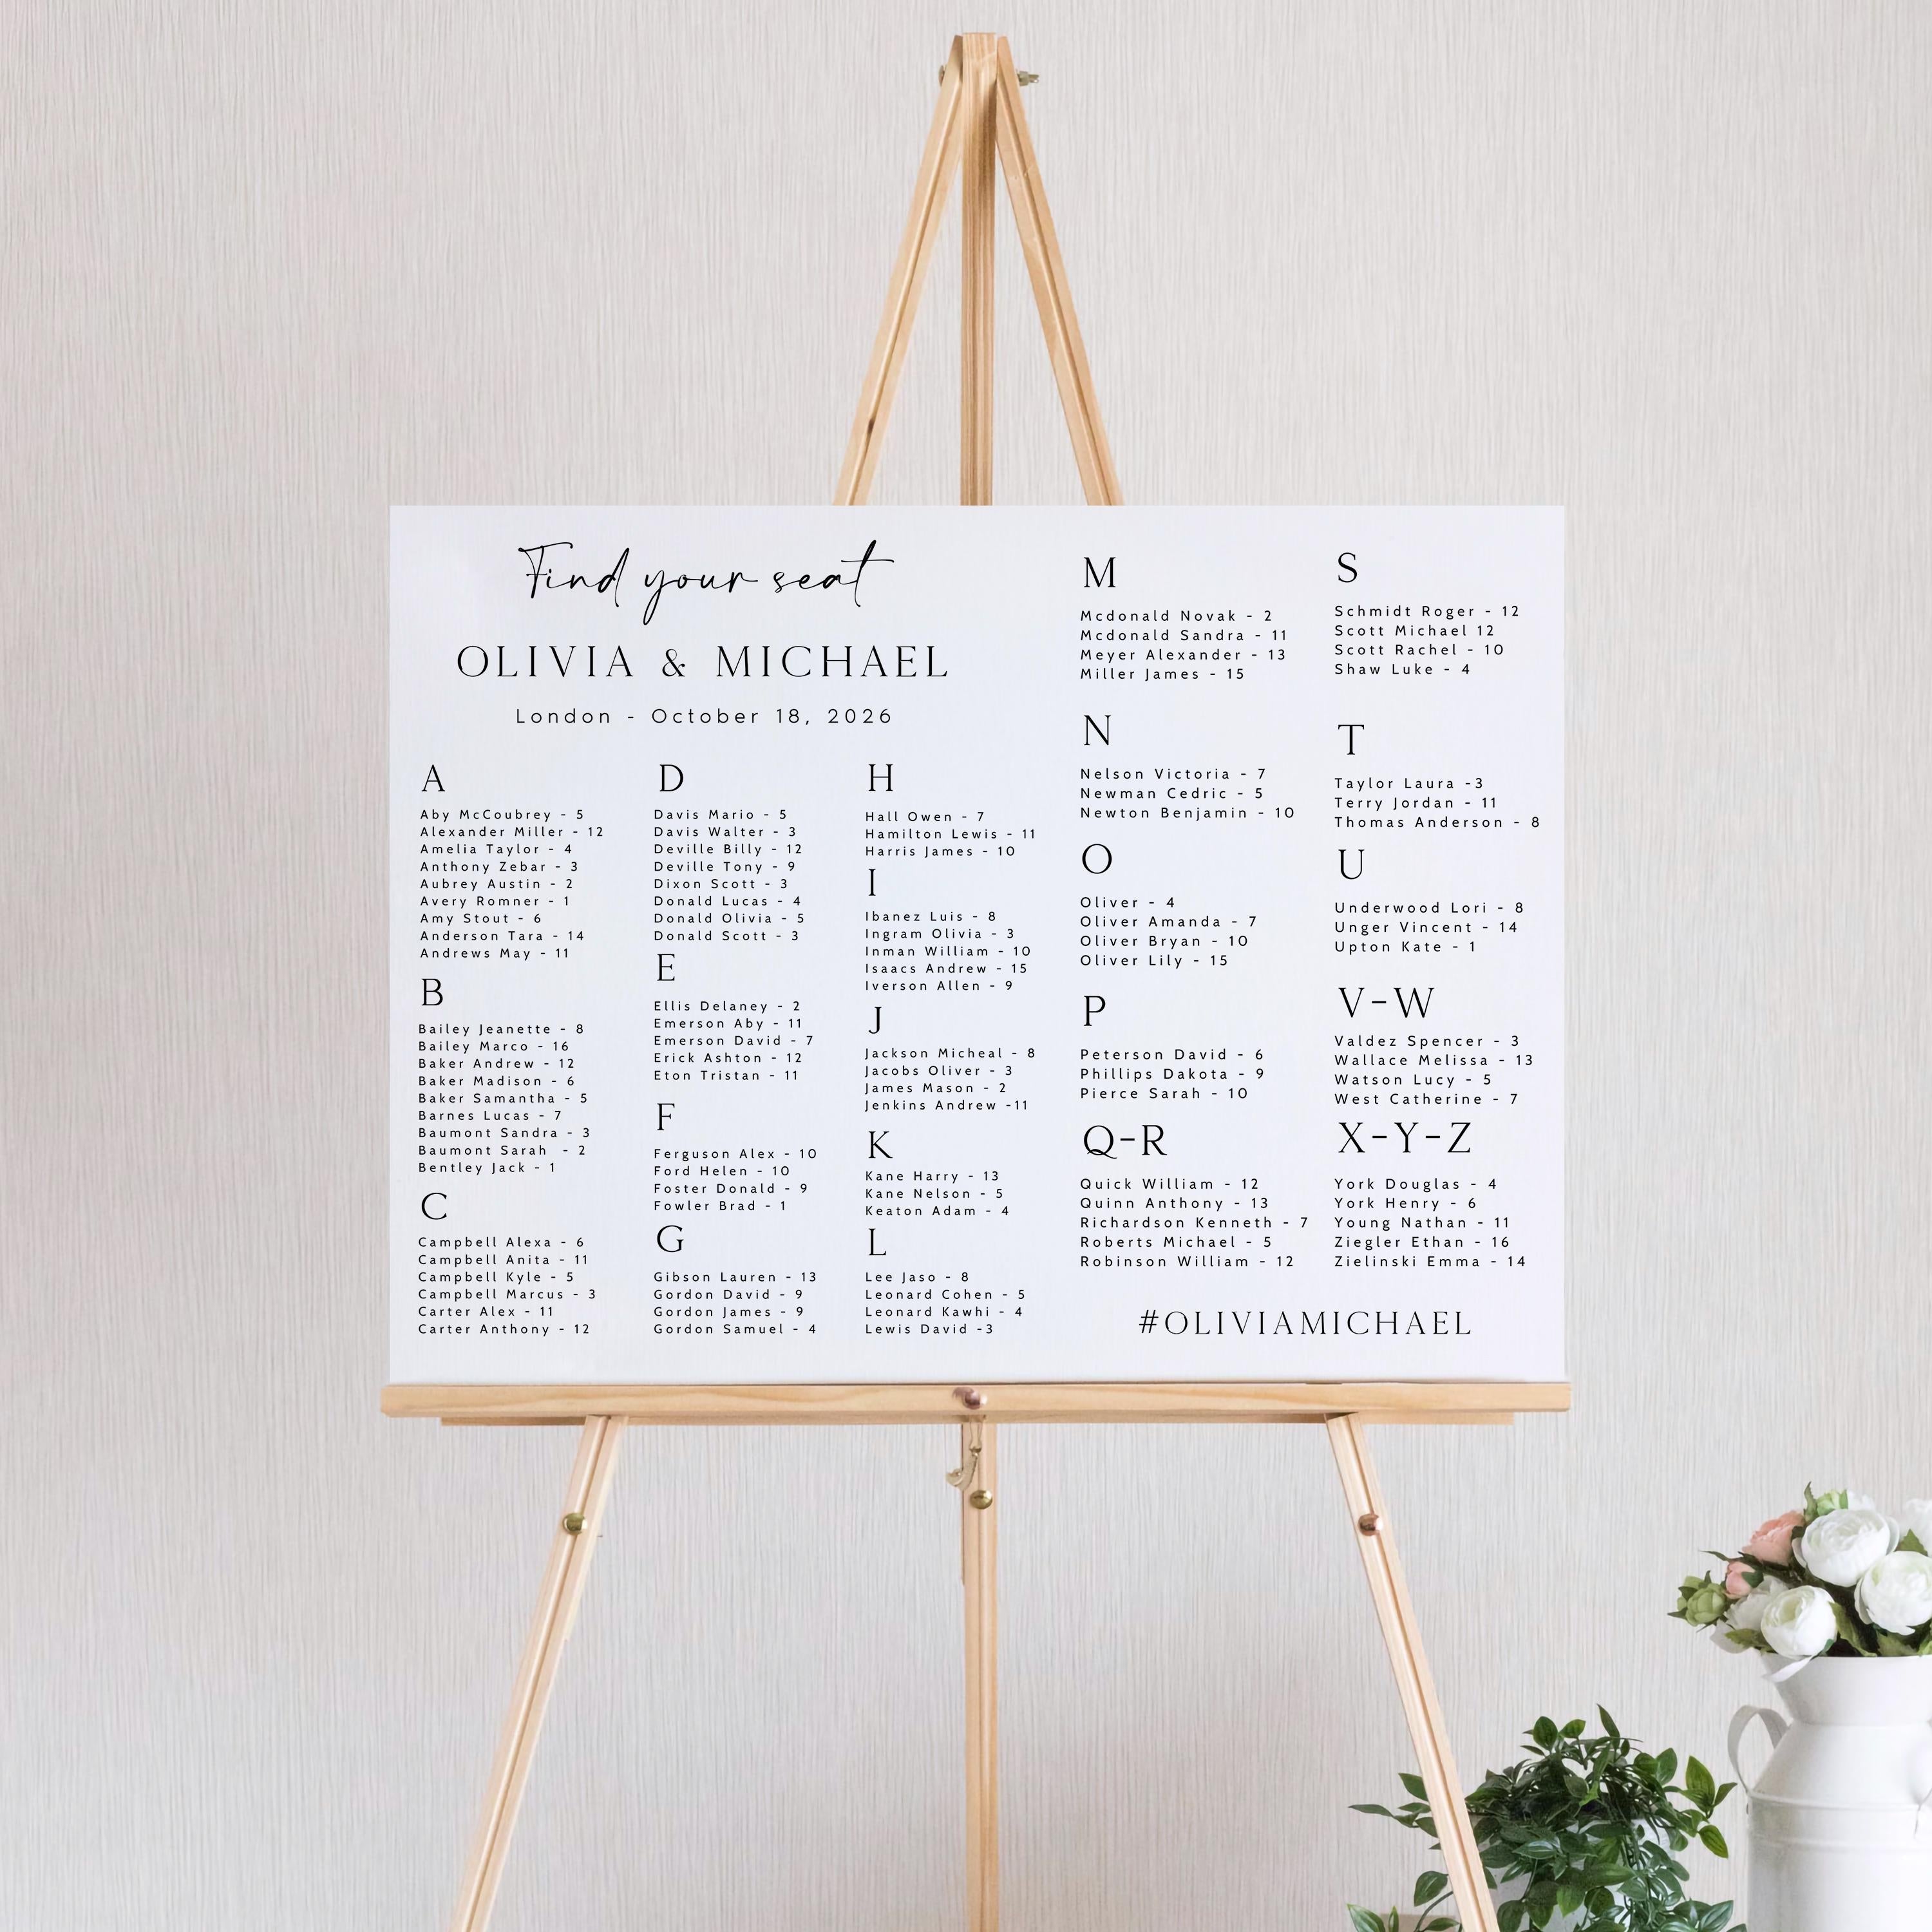 Find your seat
OLIVIA & MICHAEL
London - October 18, 2026
A
Aby McCoubrey - 5
Alexander Miller - 12
Amelia Taylor - 4
Anthony Zebar - 3
Aubrey Austin - 2
Avery Romner - 1
Amy Stout - 6
Anderson Tara - 14
Andrews May - 11
B
Bailey Jeanette - 8
Bailey Marco - 16
Baker Andrew - 12
Baker Madison - 6
Baker Samantha - 5
Barnes Lucas - 7
Baumont Sandra - 3
Baumont Sarah - 2
Bentley Jack - 1
C
Campbell Alexa - 6
Campbell Anita - 11
Campbell Kyle - 5
Campbell Marcus - 3
Carter Alex - 11
Carter Anthony - 12
D
Davis Mario - 5
Davis Walter - 3
Deville Billy - 12
Deville Tony - 9
Dixon Scott - 3
Donald Lucas - 4
Donald Olivia - 5
Donald Scott - 3
E
Ellis Delaney - 2
Emerson Aby - 11
Emerson David - 7
Erick Ashton - 12
Eton Tristan - 11
F
Ferguson Alex - 10
Ford Helen - 10
Foster Donald - 9
Fowler Brad - 1
G
Gibson Lauren - 13
Gordon David - 9
Gordon James - 9
Gordon Samuel - 4
H
Hall Owen - 7
Hamilton Lewis - 11
Harris James - 10
I
Ibanez Luis - 8
Ingram Olivia - 3
Inman William - 10
Isaacs Andrew - 15
Iverson Allen - 9
J
Jackson Micheal - 8
Jacobs Oliver - 3
James Mason - 2
Jenkins Andrew -11
K
Kane Harry - 13
Kane Nelson - 5
Keaton Adam - 4
L
Lee Jaso - 8
Leonard Cohen - 5
Leonard Kawhi - 4
Lewis David -3
M
Mcdonald Novak - 2
Mcdonald Sandra - 11
Meyer Alexander - 13
Miller James - 15
N
Nelson Victoria - 7
Newman Cedric - 5
Newton Benjamin - 10
O
Oliver - 4
Oliver Amanda - 7
Oliver Bryan - 10
Oliver Lily - 15
P
Peterson David - 6
Phillips Dakota - 9
Pierce Sarah - 10
Q-R
Quick William - 12
Quinn Anthony - 13
Richardson Kenneth - 7
Roberts Michael - 5
Robinson William - 12
S
Schmidt Roger - 12
Scott Michael 12
Scott Rachel - 10
Shaw Luke - 4
T
Taylor Laura -3
Terry Jordan - 11
Thomas Anderson - 8
U
Underwood Lori - 8
Unger Vincent - 14
Upton Kate - 1
V-W
Valdez Spencer - 3
Wallace Melissa - 13
Watson Lucy - 5
West Catherine - 7
X-Y-Z
York Douglas - 4
York Henry - 6
Young Nathan - 11
Ziegler Ethan - 16
Zielinski Emma - 14
#OLIVIAMICHAEL